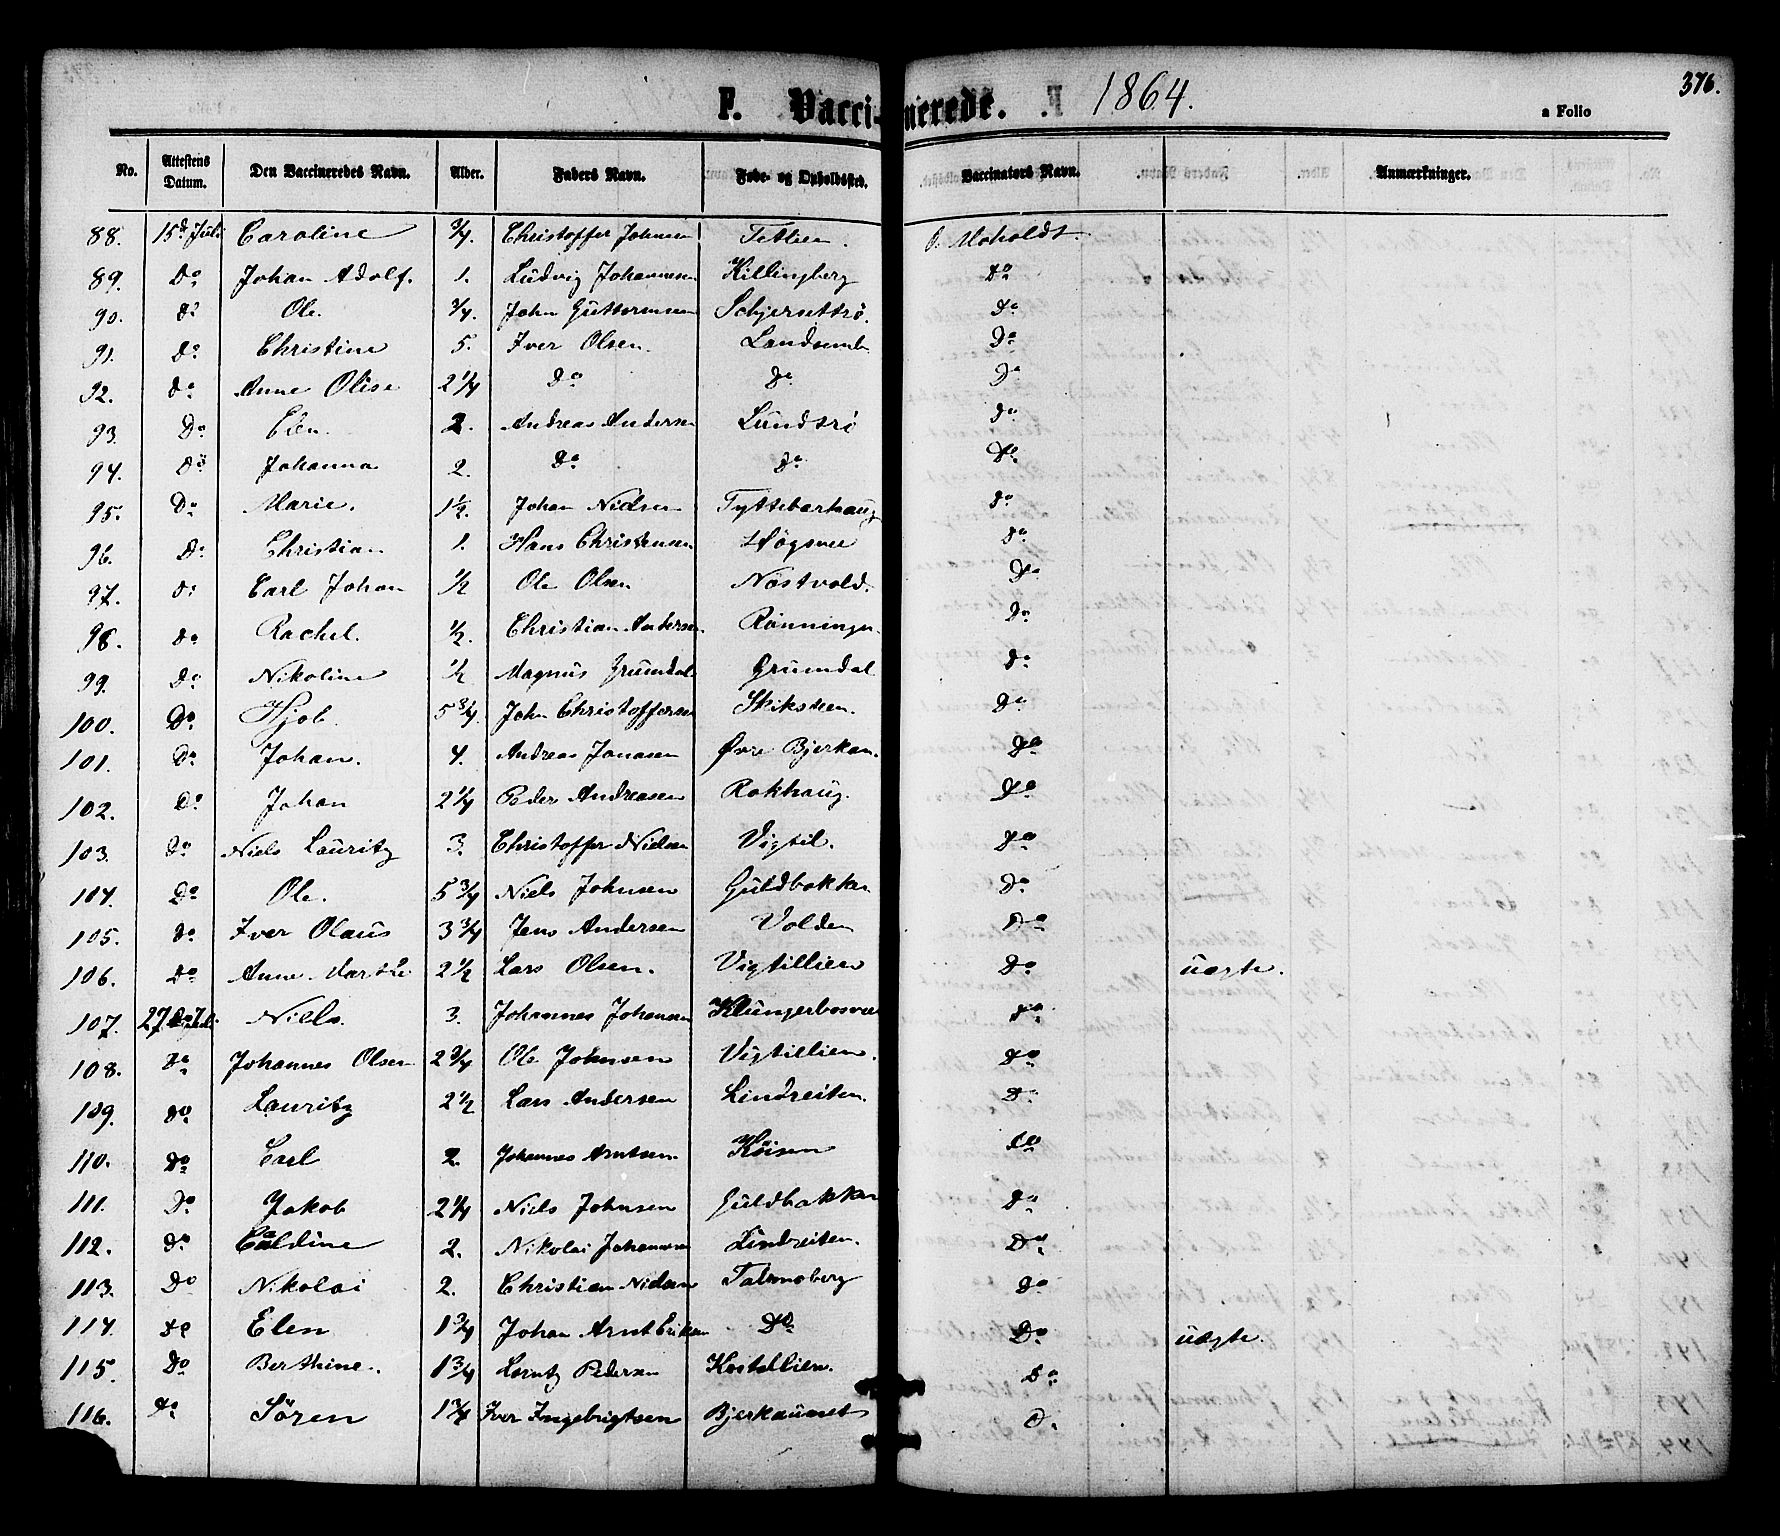 376.
F. Vaccinerede. 1864.
a Folio
No. Attestens Datum. Den Vaccineredes Navn. Alder. Faders Navn. Føde- og Opholdssted. Vaccinators Navn. Anmærkninger.
88. 15de Juli Caroline 3/4. Christoffer Johnsen Tetlien. O. Moholdt.
89. Do Johan Adolf. 1. Ludvig Johannesen Killingberg Do
90. do Ole. 3/4. John Guttormsen Schjersttrø. Do
91. do Christine 5. Iver Olsen. Landsemb Do
92. do Anne Olise 2 1/4 do do Do
93. Do Elen. 2. Andreas Andersen Lundsrø do
94. Do Johanna 2. do do Do
95. Do Marie. 1 1/2. Johan Nielsen Tyttebærhaug do
96. Do Christian 1. Hans Christensen Høgsvee do
97. do Carl Johan 1/2 Ole Olsen Nøstvold. Do
98. do Rachel. 1/2. Christian Andersen Rønningen. Do
99. Do Nikoline 1/2 Magnus Grumdal Grumdal do
100. Do Hjob. 5 3/4. John Christoffersen Skiksteen. Do
101. Do Johan. 4. Andreas Jonasen Øvre Bjerkan. Do
102. Do Johan 2 1/4 Peder Andreasen Rokhaug. Do
103. Do Niels Lauritz 3. Christoffer Nielsen Vigtil. Do
104. Do Ole. 5 3/4 Niels Johnsen Guldbakken Do
105. do Iver Olaus 3 3/4 Jens Andersen Volden Do
106. Do Anne Marthe 2 1/2 Lars Olsen. Vigtillien Do uægte.
107. 27de Juli Niels. 3. Johannes Johansen Klungerbosvee Do
108. Do Johannes Olsen 2 3/4 Ole Johnsen Vigtillien. Do
109. Do Lauritz 2 1/2 Lars Andersen Lindreiten. Do
110. Do Carl 2. Johannes Arntsen. Køisen Do
111. Do Jakob 2 1/4 Niels Johnsen Guldbakken Do
112. Do Caldine 2. Nikolai Johansen Lindreiten. Do
113. Do Nikolai 2. Christian Nielsen Talmoberg Do
114. Do Elen 1 3/4 Johan Arnt Eriksen Do Do uægte.
115. Do Berthine. 1 3/4 Lorntz Pedersen Kastellien. Do
116. Do Sören 1 3/4 Iver Ingebrigtsen Bjerkaunet D.